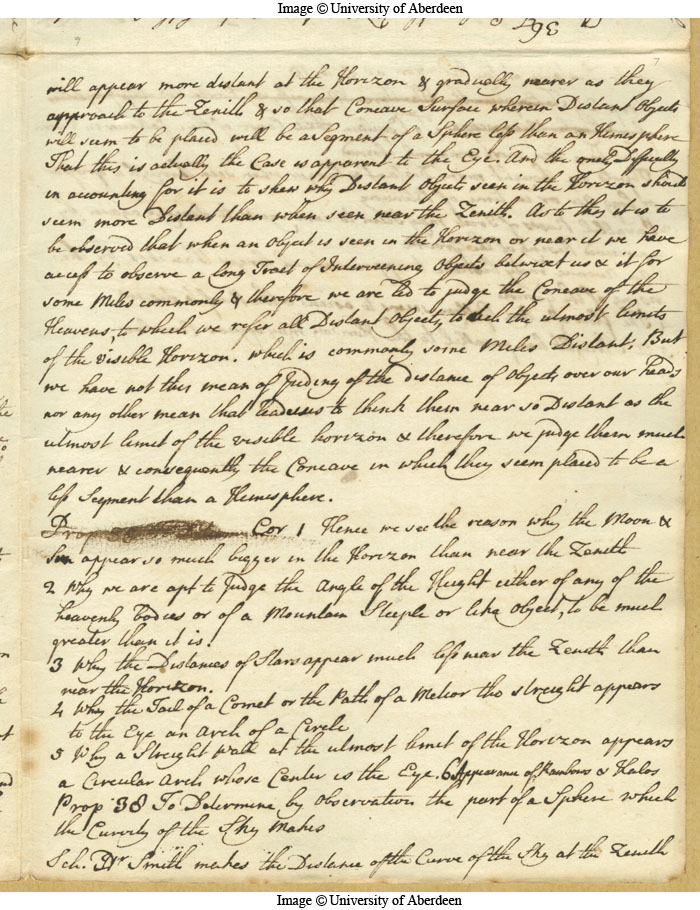 Image © University of Aberdeen
36
7
will appear more distant at the Horizon & gradually nearer as they
approach to the Zenith & so that Concave Surface wherein Distant Objects
will seem to be placed will be a Segment of a Sphere less than an Hemisphere
That this is actually the Case is apparent to the Eye. And the onely Difficulty
in accounting for it is to shew why Distant Objects seen in the Horizon should
seem more Distant than when seen near the Zenith. As to this it is to
be observed that when an Object is seen in the Horizon or near it we have
access to observe a long Tract of Interveening Objects betwixt us & it for
some Miles commonly & therefore we are led to judge the Concave of the
Heavens, to which we refer all Distant Objects, to the utmost limits
of the visible Horizon. which is commonly some Miles Distant; But
we have not this mean of Judging of the distance of Objects over our heads
nor any other mean that leads us to think them near so Distant as the
utmost limit of the visible horizon & therefore we judge them much
nearer & consequently the Concave in which they seem placed to be a
less Segment than a Hemisphere.
Prop Cor 1 Hence we see the reason why the Moon &
Sun appear so much bigger in the Horizon than near the Zenith
2 Why we are apt to Judge the Angle of the Height either of any of the
heavenly bodies or of a Mountain Steeple or like Object, to be much
greater than it is.
3 Why the Distances of Stars appear much less near the Zenith than
near the Horizon.
4 Why the Tail of a Comet or the Path of a Meteor tho streight appears
to the Eye an Arch of a Circle
5 Why a Streight Wall at the utmost limit of the Horizon appears
a Circular Arch whose Center is the Eye. 6 Appearance of Rainbows & Halos
Prop 38 To Determine by Observation the part of a Sphere which
the Curvity of the Sky Makes
Sch. Dr Smith makes the Distance of the Curve of the Sky at the Zenith
Image © University of Aberdeen